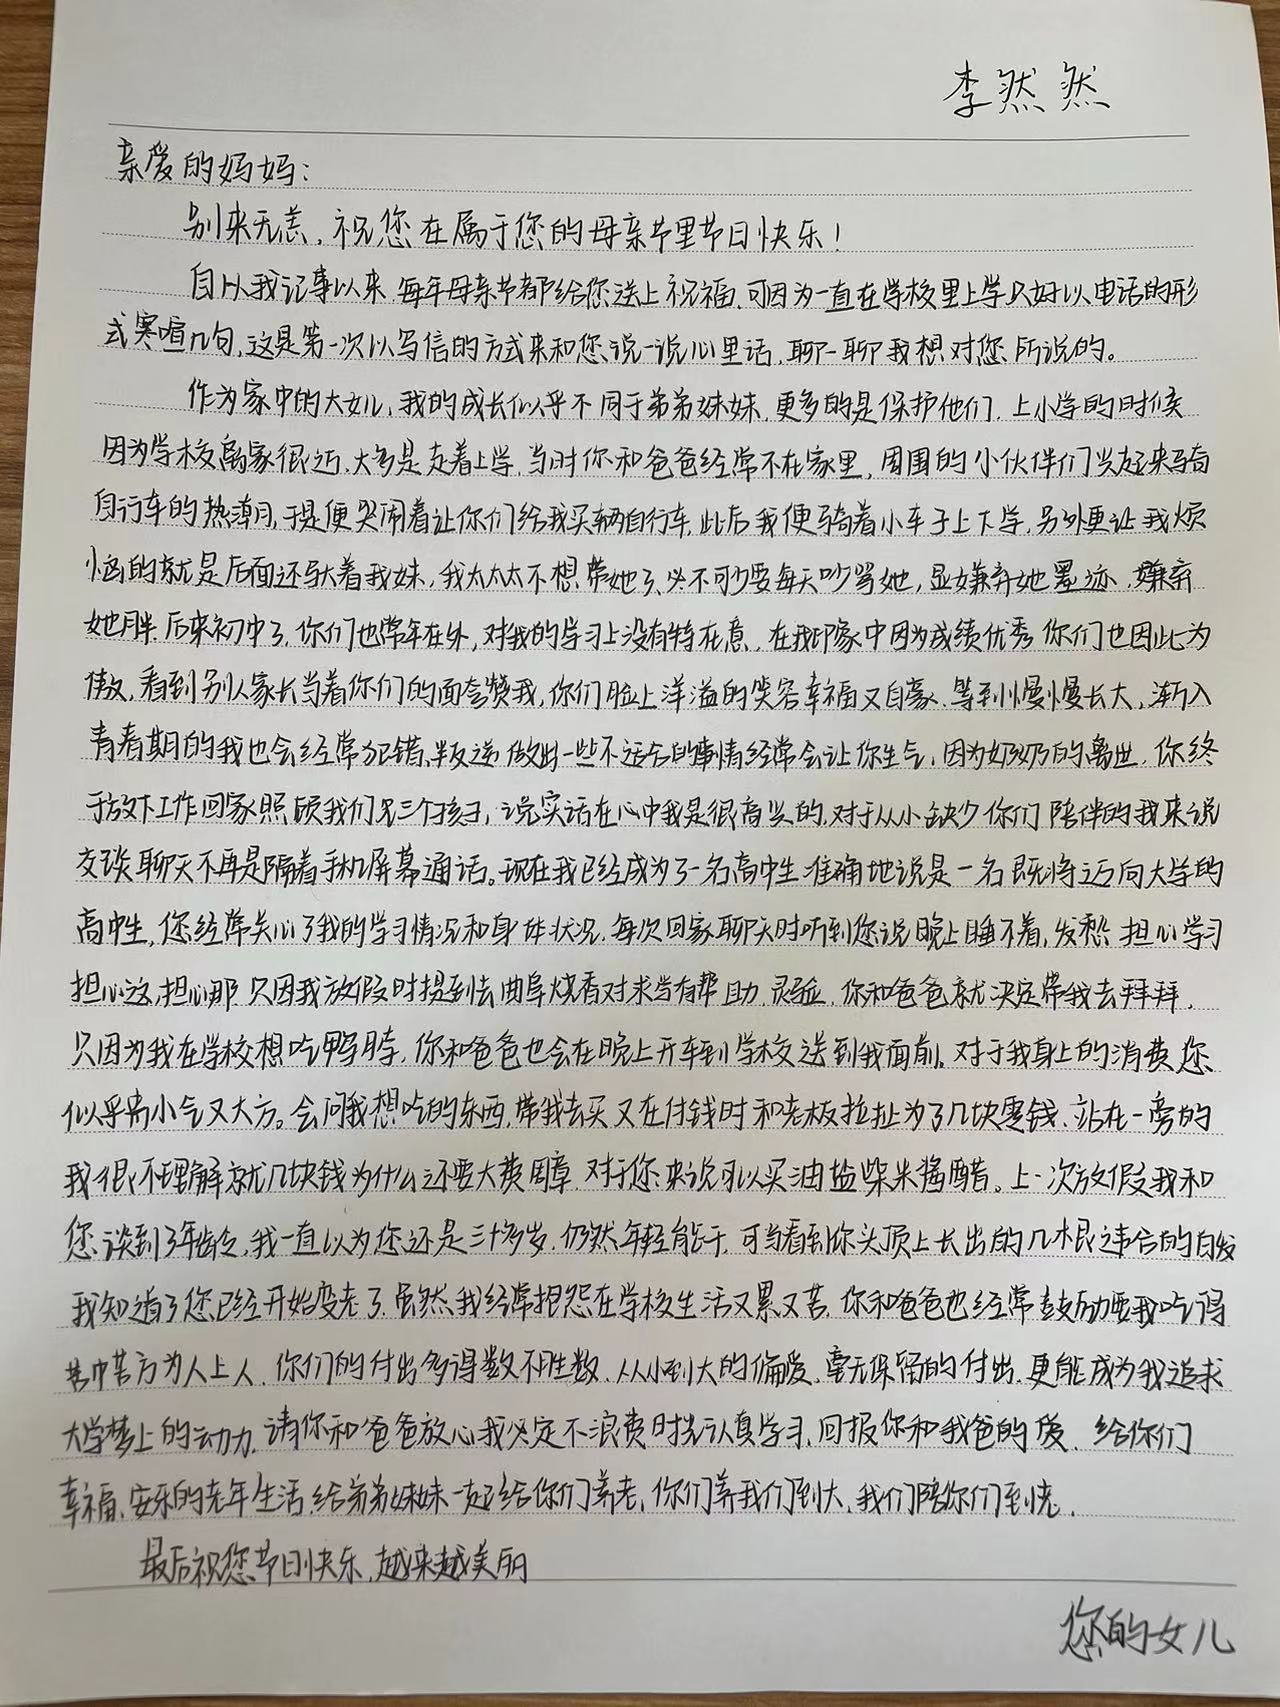 李然然
亲爱的妈妈：
别来无恙，祝您在属于您的母亲节里节日快乐！
自从我记事以来，每年母亲节都给您送上祝福，可因为一直在学校里上学只好以电话的形
式寒喧几句，这是第一次以写信的方式来和您说一说心里话，聊一聊我想对您所说的。
作为家中的大女儿，我的成长似乎不同于弟弟妹妹，更多的是保护他们，上小学的时候
因为学校离家很近，大多是走着上学，当时你和爸爸经常不在家里，周围的小伙伴们兴起来骑
自行车的热潮，于是便哭闹着让你们给我买辆自行车，此后我便骑着小车子上下学，另外更让我烦
恼的就是后面还驮着我妹，我太太太不想带她了，必不可少要每天吵骂她，显嫌弃她墨迹，嫌弃
她胖。后来初中了，你们也常年在外，对我的学习上没有特在意，在我印象中因为成绩优秀你们也因此为
傲，看到别人家长当着你们的面夸赞我，你们脸上洋溢的笑容幸福又自豪，等到慢慢长大，渐入
青春期的我也会经常犯错、叛逆做出一些不适合的事情经常会让你生气，因为奶奶的离世，你终
于放下工作回家照顾我们兄三个孩子，说实话在心中我是很高兴的，对于从小缺少你们陪伴的我来说
交谈聊天不再是隔着手机屏幕通话。现在我已经成为了一名高中生准确地说是一名既将迈向大学的
高中生，您经常关心了我的学习情况和身体状况，每次回家聊天时听到您说晚上睡不着，发愁，担心学习
担心这，担心那，只因我放假时提到去曲阜烧香对求学有帮助，灵验，你和爸爸就决定带我去拜拜，
只因为我在学校想吃鸭脖，你和爸爸也会在晚上开车到学校送到我面前。对于我身上的消费您
似乎常小气又大方。会问我想吃的东西，带我去买又在付钱时和老板拉扯为了几块零钱、站在一旁的
我很不理解就几块钱为什么还要大费周章，对于您来说可以买油盐柴米酱醋。上一次放假我和
您谈到了年龄，我一直以为您还是三十多岁，仍然年轻能干，可当看到你头顶上长出的几根违合的白发
我知道了您已经开始变老了，虽然我经常抱怨在学校生活又累又苦，你和爸爸也经常鼓励要我吃得
苦中苦方为人上人，你们的付出多得数不胜数，从小到大的偏爱，毫无保留的付出，更能成为我追求
大学梦上的动力，请你和爸爸放心我必定不浪费时光认真学习，回报你和我爸的爱，给你们
幸福、安乐的老年生活，给弟弟妹妹一起给你们养老，你们养我们到大，我们陪你们到老，
最后祝您节日快乐，越来越美丽
您的女儿